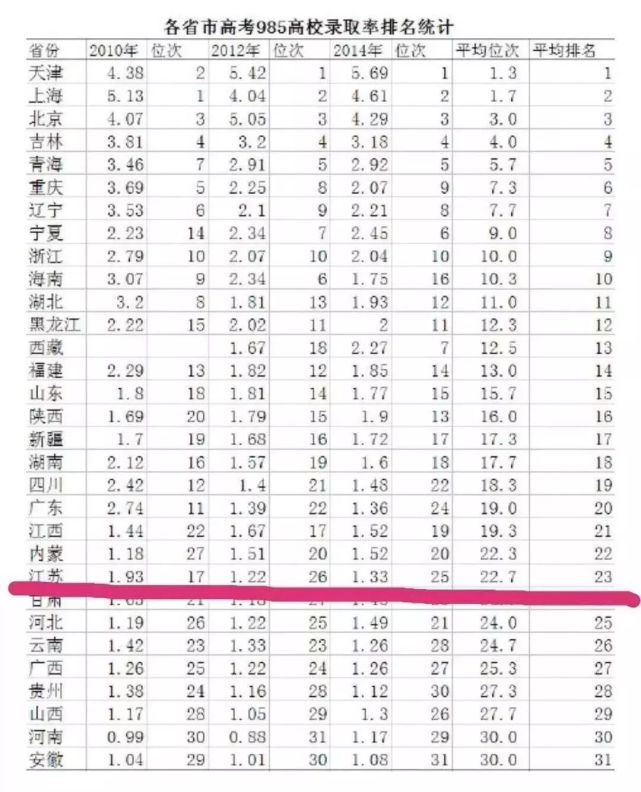 各省市高考985高校录取率排名统计
省份 2010年 位次 2012年 位次 2014年 位次 平均位次 平均排名
天津 4.38 2 5.42 1 5.69 1 1.3 1
上海 5.13 1 4.04 2 4.61 2 1.7 2
北京 4.07 3 5.05 3 4.29 3 3.0 3
吉林 3.81 4 3.2 4 3.18 4 4.0 4
青海 3.46 7 2.91 5 2.92 5 5.7 5
重庆 3.69 5 2.25 8 2.07 9 7.3 6
辽宁 3.53 6 2.1 9 2.21 8 7.7 7
宁夏 2.23 14 2.34 7 2.45 6 9.0 8
浙江 2.79 10 2.07 10 2.04 10 10.0 9
海南 3.07 9 2.34 6 1.75 16 10.3 10
湖北 3.2 8 1.81 13 1.93 12 11.0 11
黑龙江 2.22 15 2.02 11 2 11 12.3 12
西藏 1.67 18 2.27 7 12.5 13
福建 2.29 13 1.82 12 1.85 14 13.0 14
山东 1.8 18 1.81 14 1.77 15 15.7 15
陕西 1.69 20 1.79 15 1.9 13 16.0 16
新疆 1.7 19 1.68 16 1.72 17 17.3 17
湖南 2.12 16 1.57 19 1.6 18 17.7 18
四川 2.42 12 1.4 21 1.48 22 18.3 19
广东 2.74 11 1.39 22 1.36 24 19.0 20
江西 1.44 22 1.67 17 1.52 19 19.3 21
内蒙 1.18 27 1.51 20 1.52 20 22.3 22
江苏 1.93 17 1.22 26 1.33 25 22.7 23
甘肃
河北 1.19 26 1.22 25 1.49 21 24.0 25
云南 1.42 23 1.33 23 1.26 28 24.7 26
广西 1.26 25 1.22 24 1.26 27 25.3 27
贵州 1.38 24 1.16 28 1.12 30 27.3 28
山西 1.17 28 1.05 29 1.3 26 27.7 29
河南 0.99 30 0.88 31 1.17 29 30.0 30
安徽 1.04 29 1.01 30 1.08 31 30.0 31